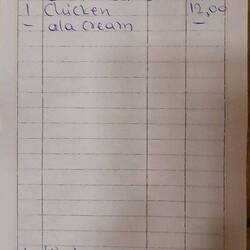 1 Chicken 12,00
– ala cream –